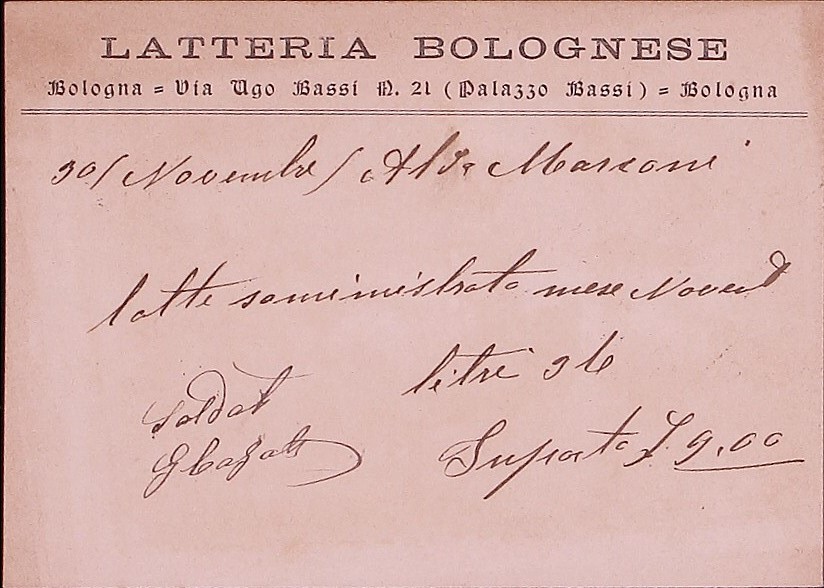 LATTERIA BOLOGNESE
Bologna = Via Ugo Bassi N. 21 (Palazzo Bassi) = Bologna
30/ Novembre / Marconi
latte sominimistrato mese Novemb
litri 36
Saldat
Importo £ 9.00